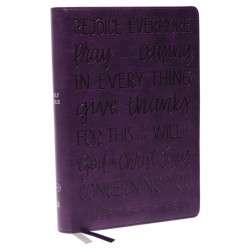 REJOICE EVERMORE
Pray without ceasing
IN EVERY THING
give thanks
FOR THIS IS THE WILL OF
God in Christ Jesus
CONCERNING YOU